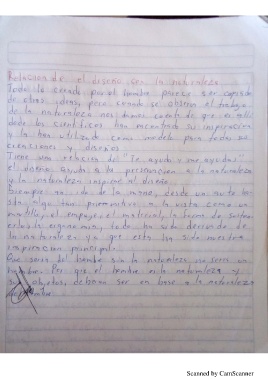 Relacion de el diseño con la naturaleza
Todo lo creado por el hombre parece ser copiado
de otras ideas, pero cuando se observa el trabajo
de la naturaleza nos damos cuenta de que es alli
donde los cientificos han encontrado su inspiracion
y la han utilizado como modelo para todas sus
creaciones y diseños
Tiene una relacion del "Te ayudo y me ayudas"
el diseño ayuda a la preservacion a la naturaleza
y la naturaleza inspira al diseño.
Siempre de la mano, desde un
algo tan a la vista como un
el empaque el material, la forma de
la ergonomia, todo ha sido derivado de
la naturaleza ya que esta ha sido nuestra
inspiracion principal.
Que seria del hombre sin la naturaleza no seria un
hombre. Por que el hombre es la naturaleza y
sus objetos, deberian ser en base a la naturaleza
Scanned by CamScanner